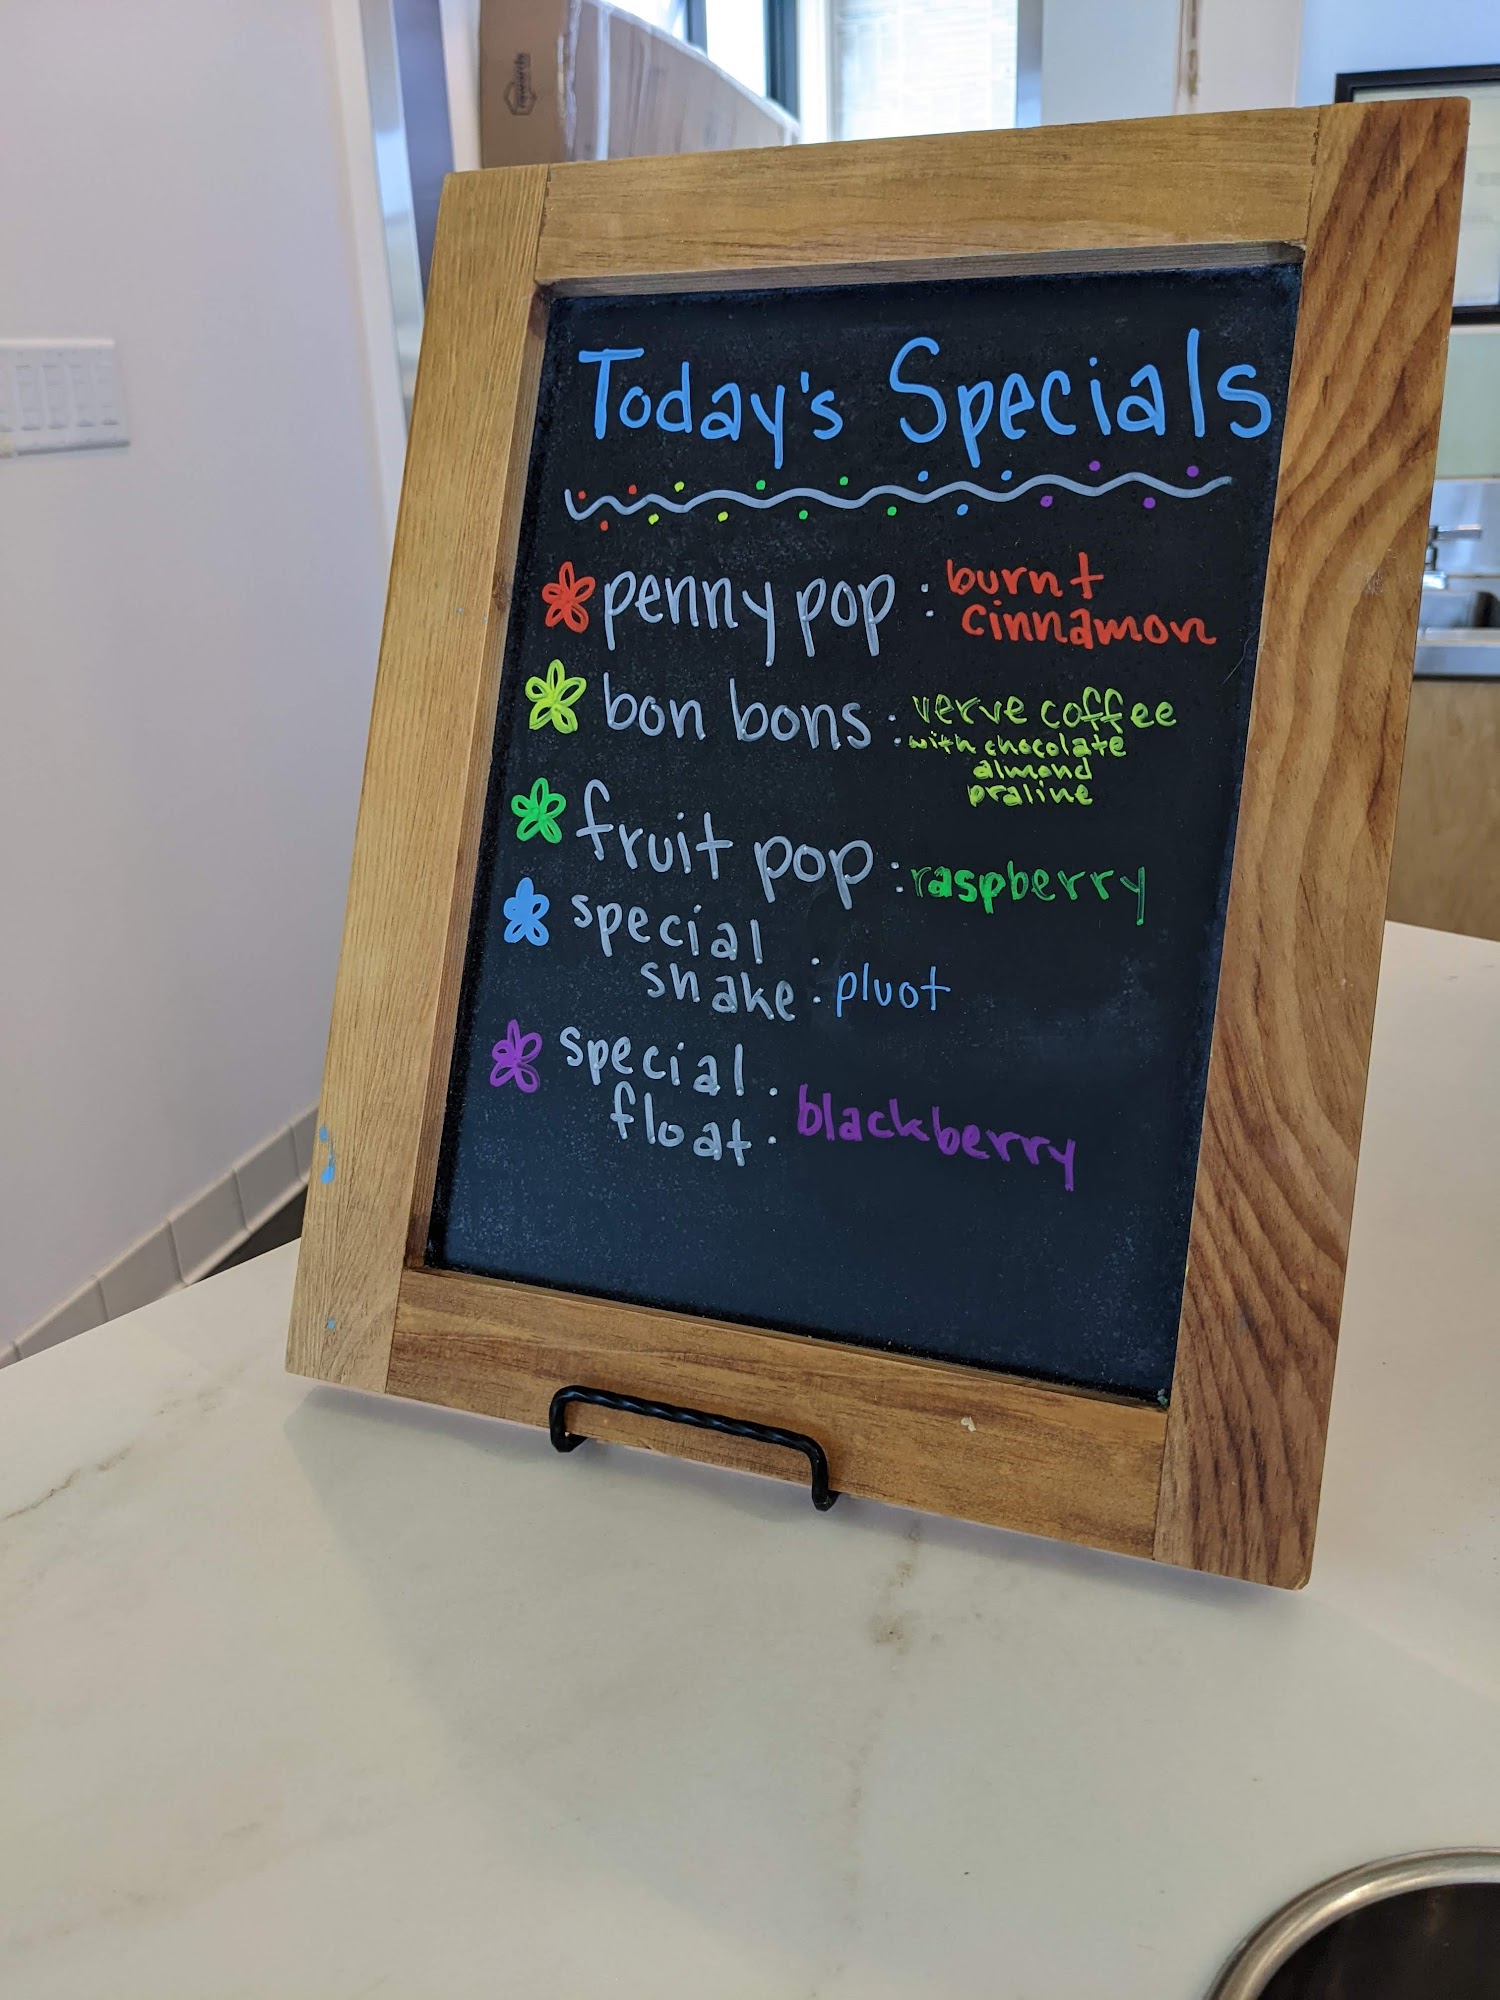 Today's Specials
penny pop : burnt
cinnamon
bon bons : verve coffee
with chocolate
almond
praline
fruit pop : raspberry
special
shake : pluot
special
float : blackberry